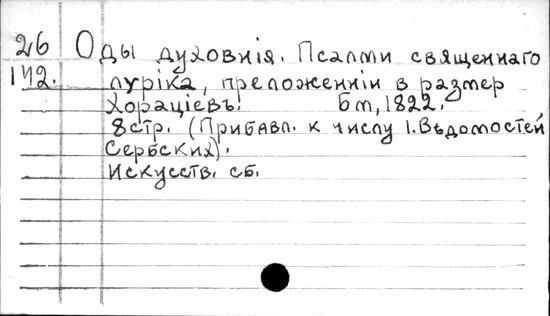 26 Оды духовнія. Псалми священнаго
142. луріка, преложенніи в размер
Хораціевъ. Бм, 1822.
8стр. (Прибавл. к числу 1. Вѣдомостей
Сербских).
Искусств. сб.